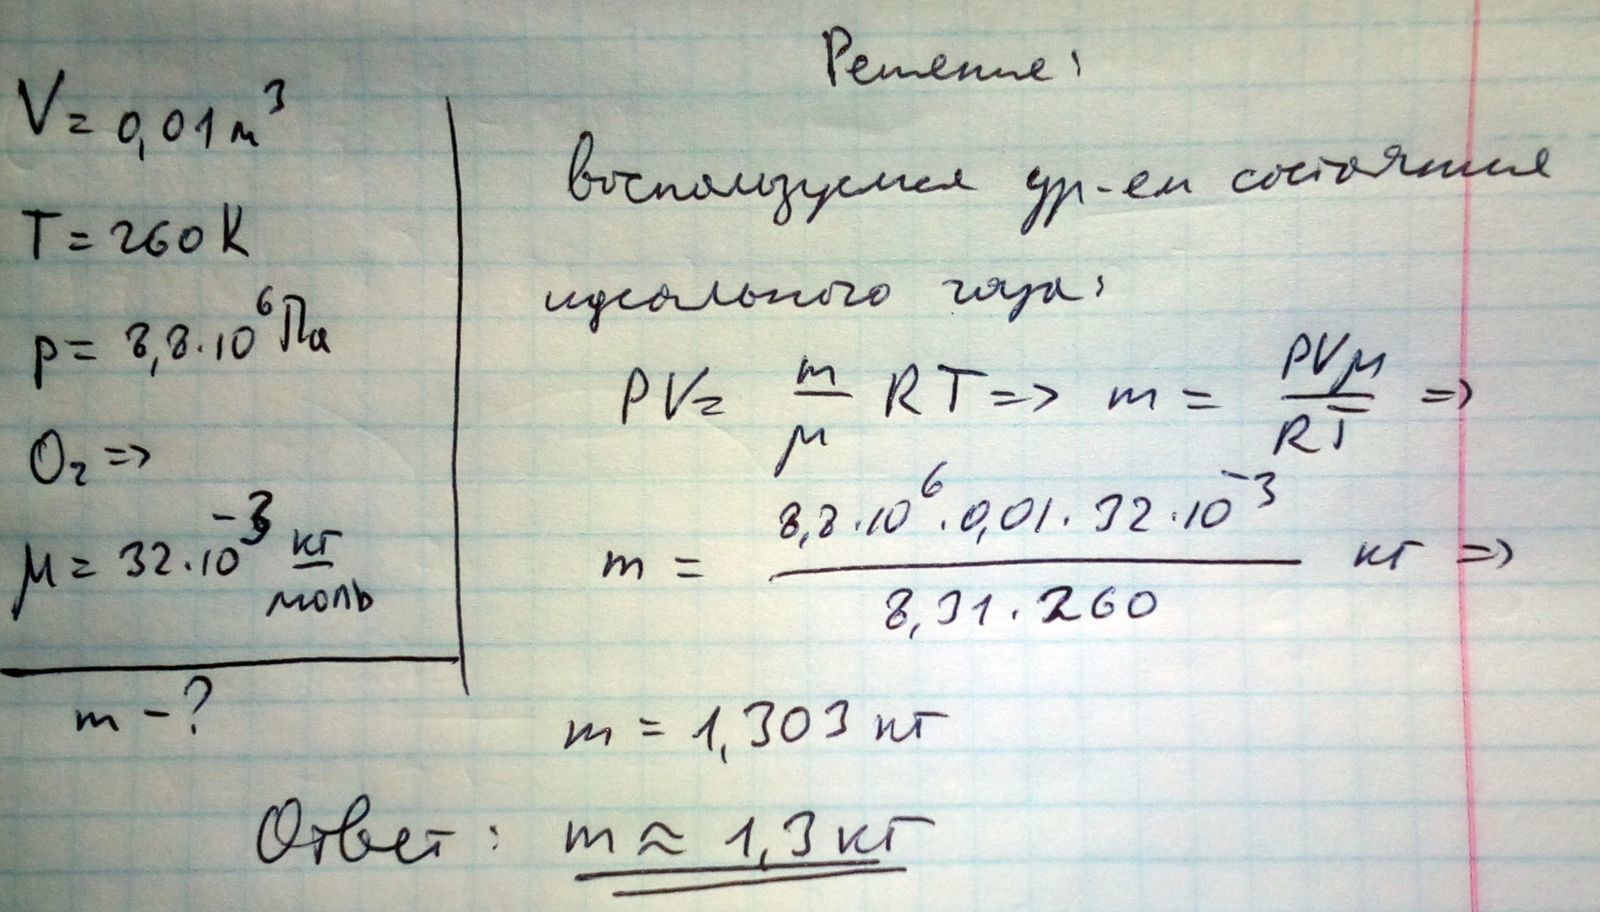 V = 0,01 м³
T = 260 К
p = 8,8·10⁶ Па
O₂ =>
μ = 32·10⁻³ кг/моль
m - ?
Решение:
Воспользуемся ур-ем состояния
идеального газа:
PV = m/μ RT => m = PVμ/RT =>
m = 8,8·10⁶·0,01·32·10⁻³/8,31·260 кг =>
m = 1,303 кг
Ответ: m ≈ 1,3 кг